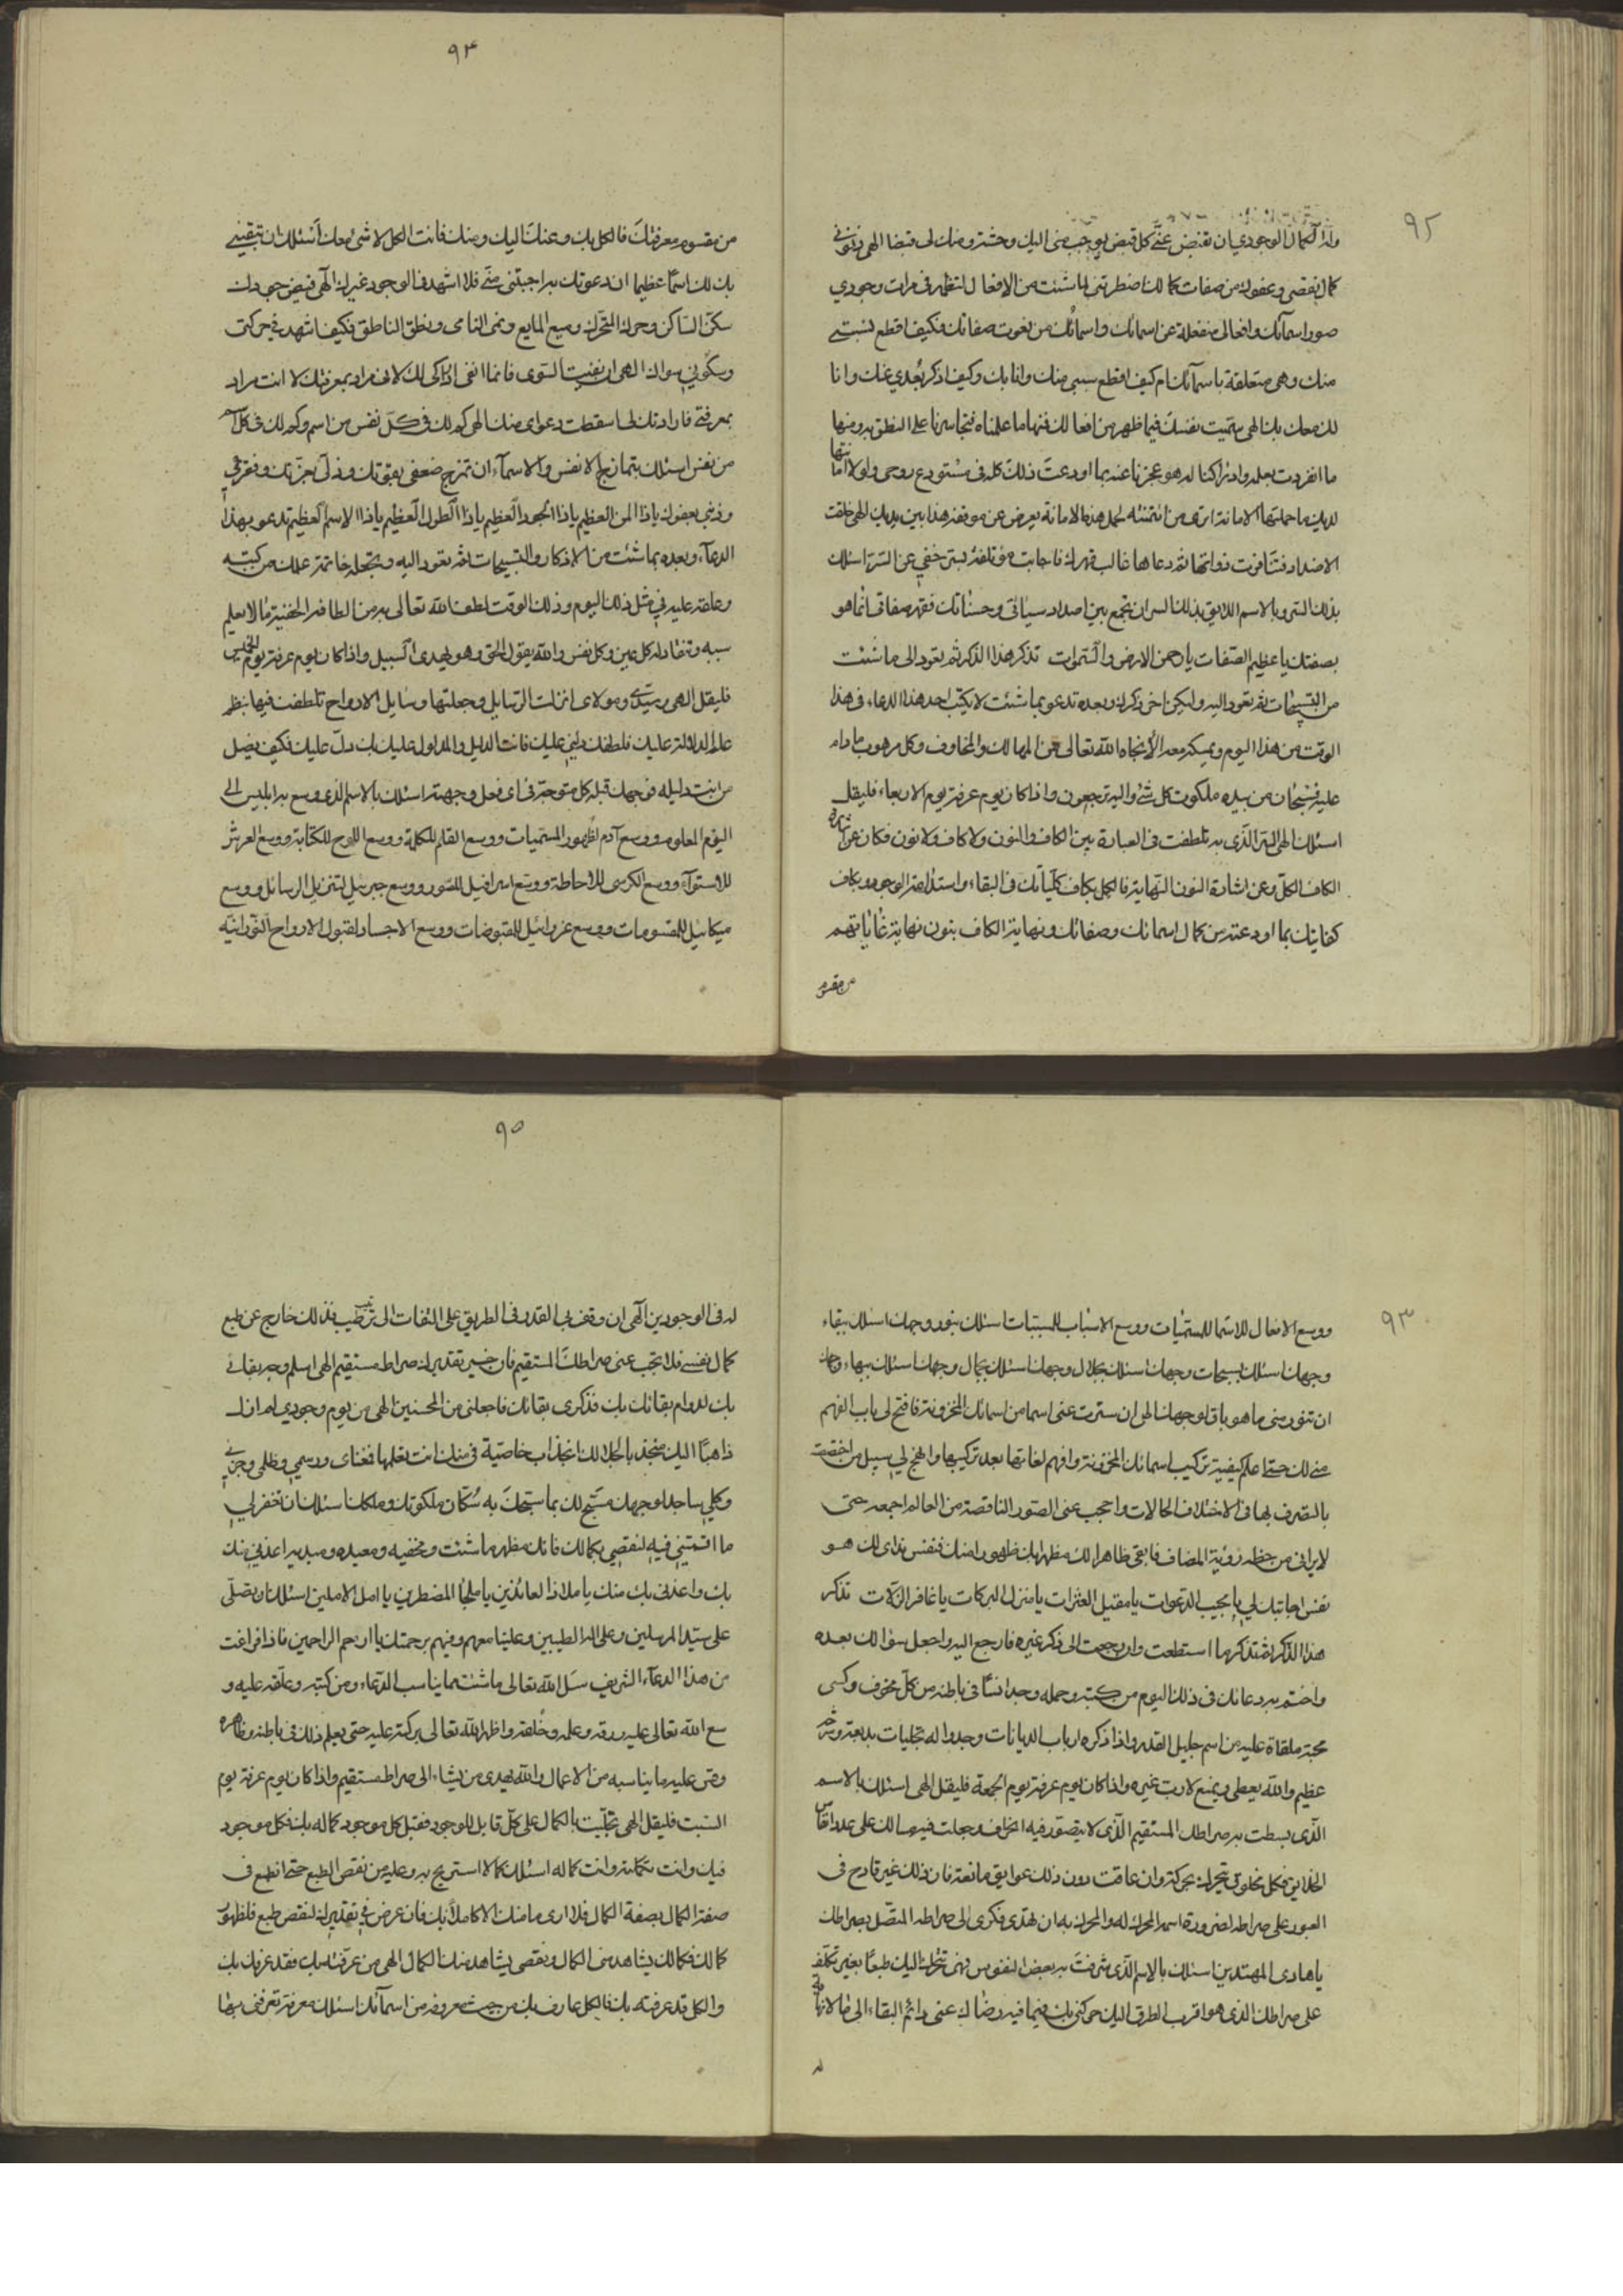 ٩٢
وله الكمال الوجودي ان تقبض عنى كل قبض يوجب منى اليك وحشة ومنك لى قبضا الهى ذنوبى
كمال نقصى وعفوك من صفات كمالك اضطرتنى لما شئت من الافعال لتظهر فى مرات وجودي
صور اسمآئك وافعالى منفعلة عن اسمائك واسمائك من نعوت صفاتك فكيف اقطع نسبتى
منك وهى متعلقة باسمآئك ام كيف اقطع سببى منك وانا بك وكيف اذكر بعدي عنك وانا
لك معك بك الهى سميت نفسك فيما ظهر من افعالك فمنها ما علمناه فتجاسرنا على النطق به ومنها
ما انفردت بعلمه وادراكنا له هو عجزنا عنه بما اودعت ذلك كله فى مستودع روحى ولولا امانتها
لديك ما حملتها الامانة اترى من ائتمنته لحمل هذه الامانة يعرض عن موقفه هذا بين يديك الهى خلقت
الاضداد فتنافرت ذواتها ثم دعاها غالب قهرك فاجابت مؤتلفة بسر خفي عن السر اسئلك
بذلك السر وبالاسم اللايق بذلك السر ان تجمع بين اضداد سيئاتى وحسناتك فقهر صفاتى انما هو
بصفتك يا عظيم الصفات يا رحمن الارض والسموات تذكر هذا الذكر ثم تعود الى ما شئت
من التسبيحات ثم تعود اليه وليكن اخر ذكرك وبعده تدعو بما شئت لا يكتب احد هذا الدعاء فى هذا
الوقت من هذا اليوم ويمسكه معه الا نجاه الله تعالى من المهالك والمخاوف وكل مرهوب ما دام
عليه فسبحان من بيده ملكوت كل شئ واليه ترجعون واذا كان يوم عرفة يوم الاربعاء فليقل
اسئلك الهى السر الذى به تلطفت فى العبارة بين الكاف والنون ولا كاف ولا نون فكان عن اشارة
الكاف الكل وعن اشارة النون النهاية فالكل بكاف كليآتك فى البقاء واستدامة الوجود وبكاف
كفايتك بما اودعته من كمال اسمائك وصفاتك ونهاية الكاف بنون نهاية غاياتهم
من مقسوم
٩٣
من مقسوم معرفتك فالكل بك وعنك اليك ومنك فانت الكل لا شئ معك أسئلك ان تبقينى
بك لك اسما عظيما ان دعوتك به اجبتنى منى فلا اشهد فى الوجود غيرك الهى فبفيض جودك
سكن الساكن وحرك المتحرك وميع المايع ونمى النامى ونطق الناطق فكيف اشهد فى حركتى
وسكونى سواك الهى ان نفيت السوى فانما انفى ادراكى لك لانى مراد بمعرفتك لا انت مراد
بمعرفتى فارادتك لى اسقطت دعواى منك الهى كم لك فى كل نفس من اسم وكم لك فى كل اسم
من نفس اسئلك بتمازج الانفس والاسمآء ان تمزج ضعفى بقوتك وذلى بعزتك وفقرى
وذنبى بعفوك يا ذا المن العظيم يا ذا الجود العظيم يا ذا الطول العظيم يا ذا الاسم العظيم تدعو بهذا
الدعآء وبعده بما شئت من الاذكار والتسبيحات ثم تعود اليه وتجعله خاتمة عملك من كتبه
وعلقه عليه فى مثل ذلك اليوم وذلك الوقت لطف الله تعالى به من الطافه الخفية ما لا يعلم
سببه وتنقاد له كل عين وكل نفس والله يقول الحق وهو يهدى السبيل واذا كان يوم عرفة يوم الخميس
فليقل الهى وسيدى ومولاى انزلت الرسايل وجعلتها وسايل الارواح تلطفت فيها بنظم
عالم الدلالة عليك فلطفك دلنى عليك فانت الدليل والمدلول عليك بك دل عليك فكيف يضل
من انت دليله فوجهك قبلة كل متوجه فى اى فعل وجهته اسئلك بالاسم الذى وسع به ابليس الى
اليوم المعلوم ووسع آدم لظهور المسميات ووسع القلم للكلمة ووسع اللوح للكتابة ووسع العرش
للاستوآء ووسع الكرسى للاحاطة ووسع اسرافيل للصور ووسع جبرئيل لتنزيل الرسائل ووسع
ميكائيل للمقسومات ووسع عزرائيل للمقبوضات ووسع الاجساد لقبول الارواح النورانية
٩٣
ووسع الافعال للاسما للمسميات ووسع الاسباب للمسببات اسئلك بنور وجهك اسئلك ببقاء
وجهك اسئلك بسبحات وجهك اسئلك بجلال وجهك اسئلك بجمال وجهك اسئلك ببهاء وجهك
ان تنور منى ما هو باق لوجهك الهى ان سترت عنى اسما من اسمائك المخزونة فافتح لى باب الفهم
منى لك حتى اعلم كيفية تركيب اسمائك المخزونة وافهم لغاتها بعد تركيبها وانهج لى سبيل من اختصصته
بالتصرف بها فى الاختلاف الحالات واحجب عنى الصور الناقصة من العالم اجمعه حتى
لا يرانى من حظه رؤية المضاف فابقى ظاهرا لك مظهرا بك ظهورا منك فنفس نداى لك هو
نفس اجابتك لى يا مجيب الدعوات يا مقيل العثرات يا منزل البركات يا غافر الزلات تذكر
هذا الذكر ثم تذكر ما استطعت وان رجعت الى ذكر غيره فارجع اليه واجعل سؤالك بعده
واختم به دعائك فى ذلك اليوم من كتبه وحمله وجد انسًا فى باطنه من كل مخوف وكسى
محبة ملقاة عليه من اسم جليل القدر واذا ذكره ارباب الديانات وجدوا له تجليات بديعة وسر
عظيم والله يعطى ويمنع لا رب غيره واذا كان يوم عرفة يوم الجمعة فليقل الهى اسئلك بالاسم
الذى بسطت به صراطك المستقيم الذى لا يتصور فيه انحراف وجعلت فيه مسالك على عدد انفاس
الخلايق فكل مخلوق يتحرك بحركة وان عاقت دون ذلك عوايق مانعة فان ذلك غير قادح فى
العبور على صراطه لضرورة اسم المحرك له والمحرك به ان تهدى فكرى الى صراطه المتصل بصراطك
يا هادى المهتدين اسئلك بالاسم الذى شرفت به بعض النفوس فهى تتحرك اليك طبعًا بغير تكلف
على صراطك الذى هو اقرب الطرق اليك حركنى بك فيما فيه رضاك عنى دائم البقاء الى ما لا نهاية
له
٩٥
له فى الوجودين الهى ان وقف بى القدر فى الطريق على التفات الى ترغيب فذلك خارج عن طبع
كمال نفسى فلا تحجب عنى صراطك المستقيم فان خسير تقديرك صراط مستقيم الهى اسلم وجه بقائى
بك لدوام بقائك بك فذكرى بقائك فاجعلنى من المحسنين الهى من يوم وجودي لم ازل
ذاهبًا اليك منجذبا لجلالك انجذاب خاصية فى منك انت تعلمها ففناى ورسمى وظلمى وجزئى
وكلى ساجد لوجهك مسبح لك بما سبحك به سكان ملكوتك وملكك اسئلك ان تغفر لى
ما اقمتنى فيه لنقصى بكمالك فانك مظهر ما شئت ومخفيه ومعيده ومبديه اعذنى منك
بك واعذنى بك منك يا ملاذ العائذين يا ملجأ المضطرين يا امل الاملين اسئلك ان تصلى
على سيد المرسلين وعلى اله الطيبين وعلينا معهم وفيهم برحمتك يا ارحم الراحمين فاذا فراغت
من هذا الدعآء الشريف سل الله تعالى ما شئت مما يناسب الدعاء ومن كتبه وعلقه عليه و
سع الله تعالى عليه رزقه وعلمه وخلقه واظهر الله تعالى بركته عليه حتى يعلم ذلك فى باطنه وظاهره
وقس عليه ما يناسبه من الاعمال والله يهدى من يشاء الى صراط مستقيم واذا كان يوم عرفة يوم
السبت فليقل الهى تجليت بالكمال على كل قابل للوجود فقبل كل موجود كماله بك فكل موجود
فيك وانت كماله وانت كماله اسئلك كمالا استريح به وعليه من نقص الطبع حتى انطبع فى
صفة الكمال بصفة الكمال فلا ارى ما منك الا كاملًا بك فان عرض فى تقديرك لنقص طبع فلظهور
كمالك فكمالك يشاهد منى الكمال ونقصى يشاهد منك الكمال الهى من عرفته بك فقد عرفك بك
والكل قد عرفته بك فالكل عارف بك من حيث معروفه من اسمآئك اسئلك معرفة تعرفنى بها